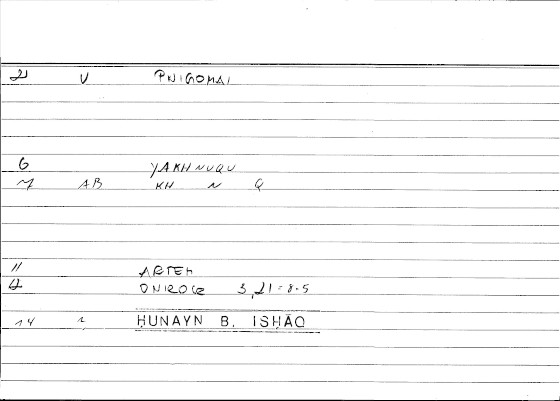 2 V PNIGOMAI
6 YAKHNUQU
7 AB KH N Q
11 ARTEM
12 ONIROCR 3,21=8.5
14 HUNAYN B. ISHĀQ